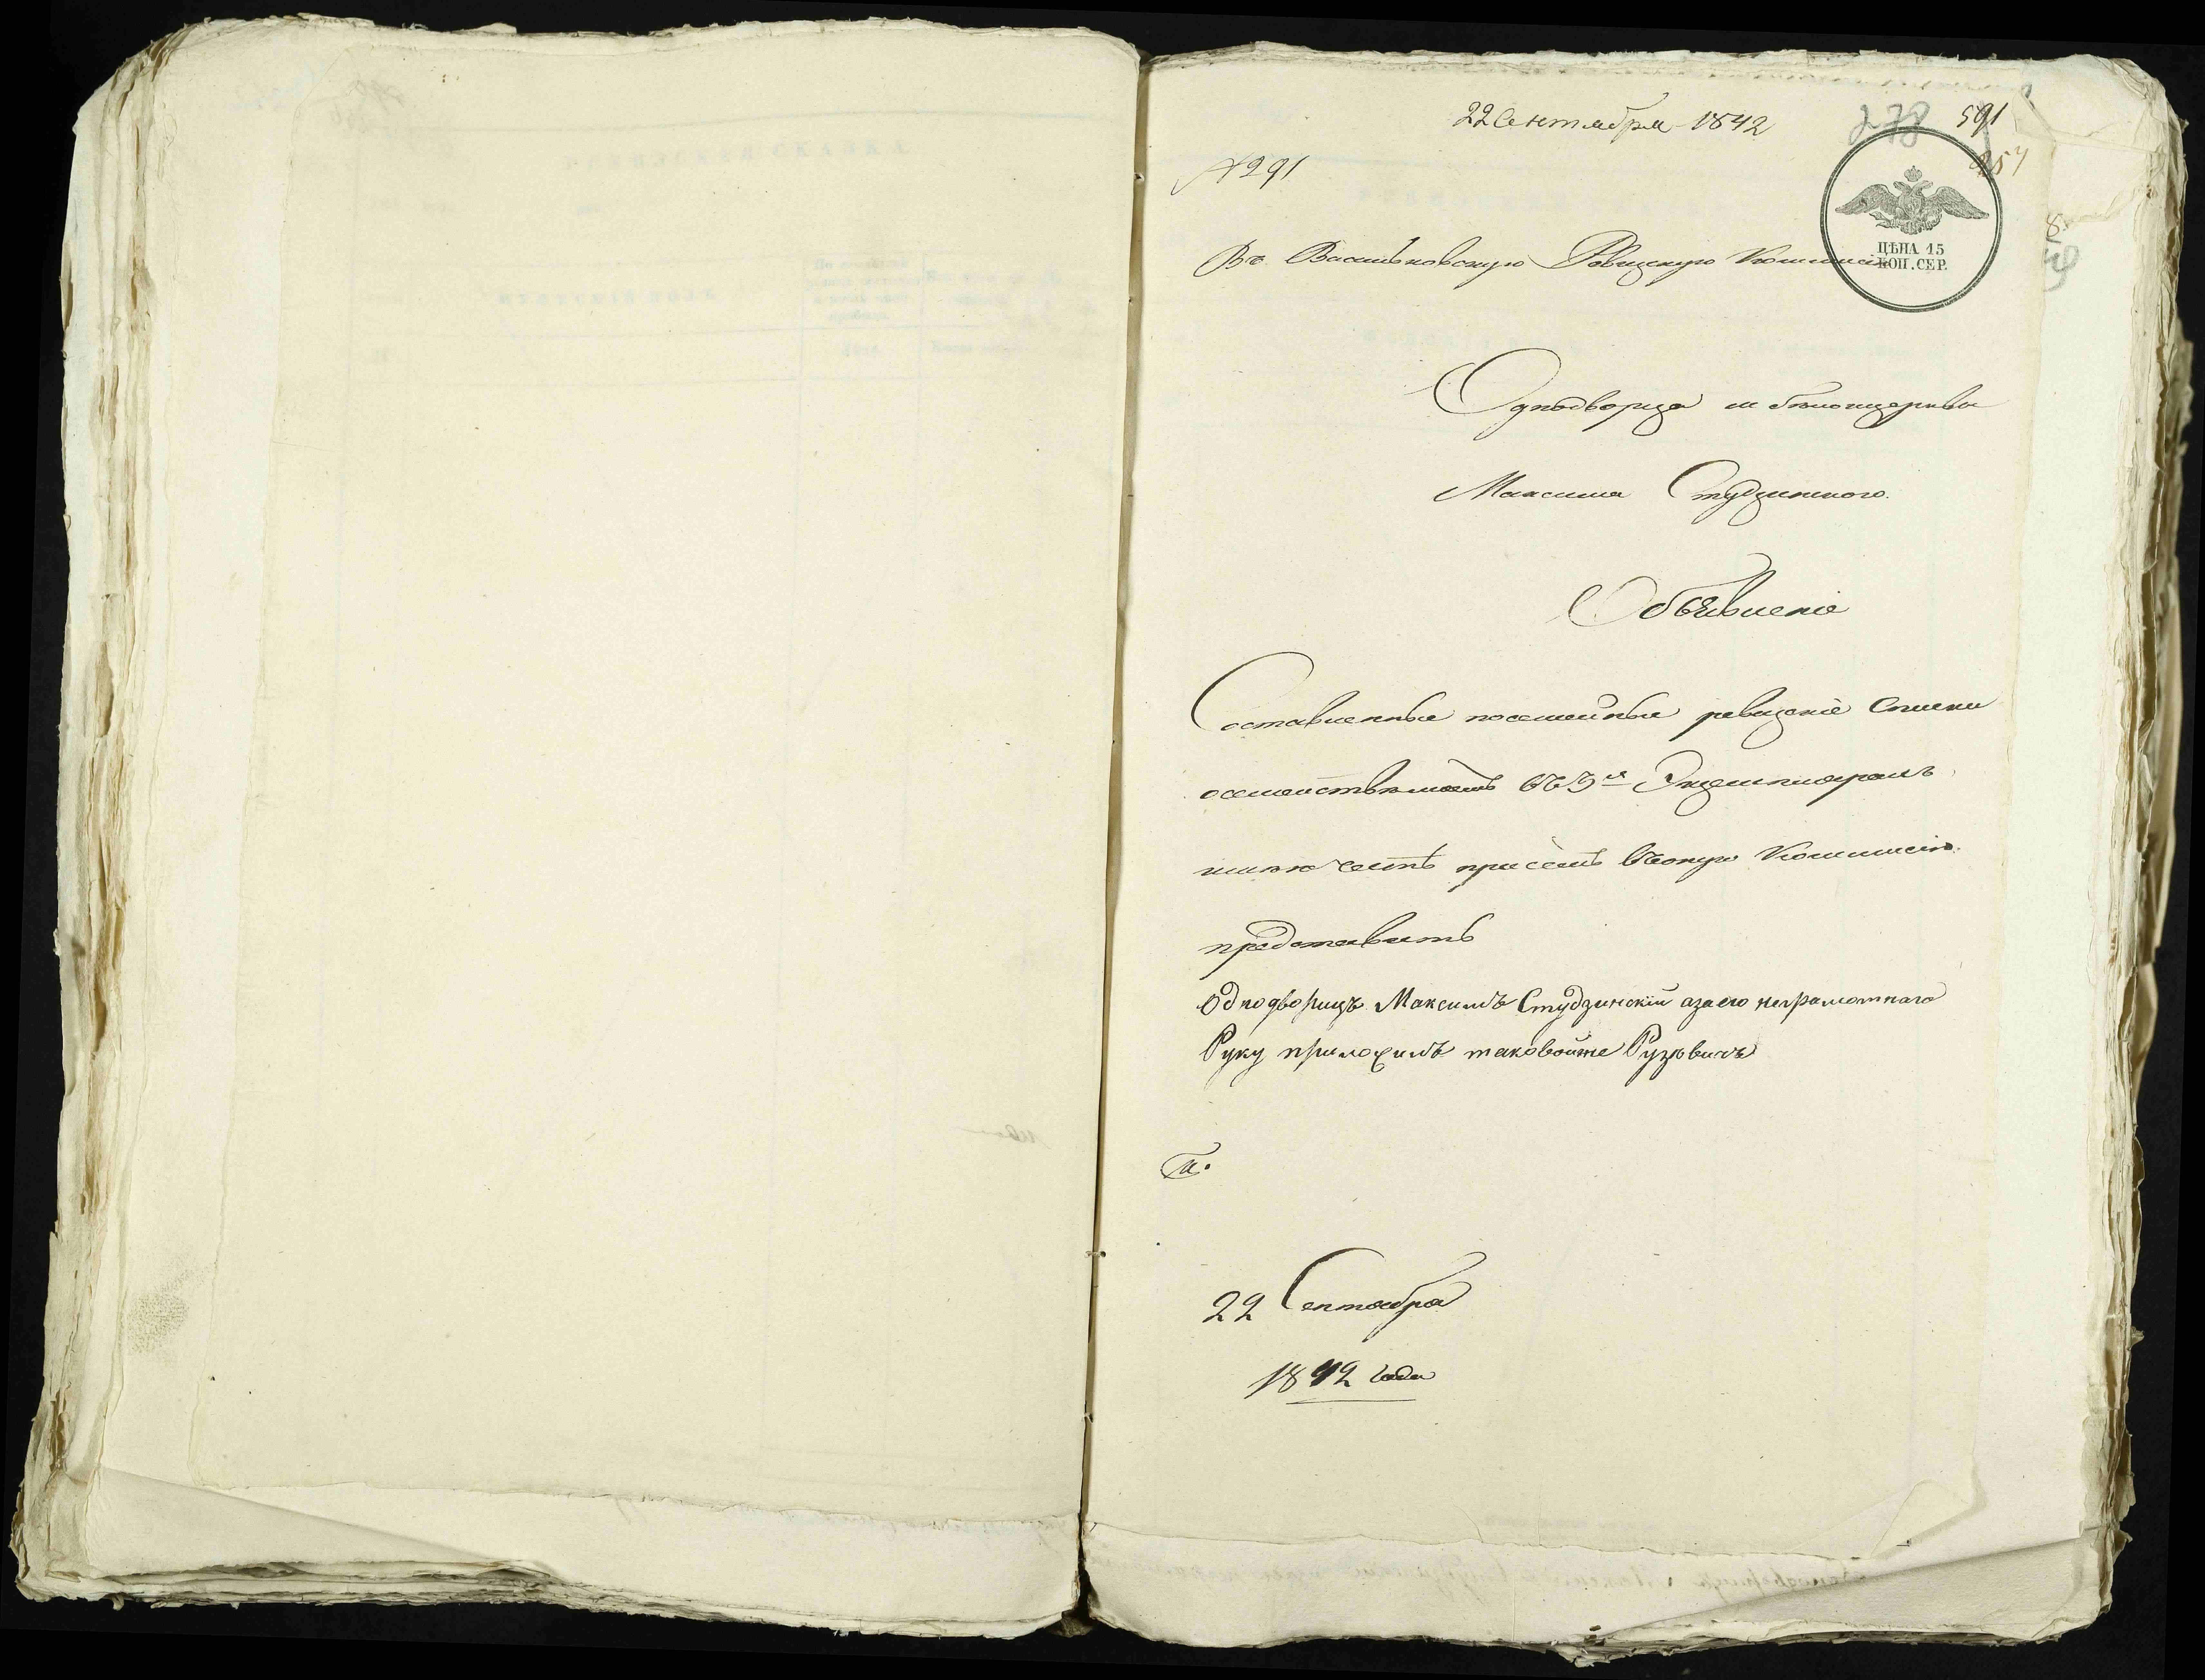 22 Сентября 1842
278
591
№ 291
ЦѢНА 15
КОП. СЕР.
Въ Васильковскую Ревизскую Коммисію
Однодворца м Белоицеркви
Максима Студзинского.
Объявленіе
Составленные посемейные ревизскіе списки
осемействѣ моемъ въ 3х Экземплярахъ
имѣю честь присемъ въоную Коммисію
представить
Однодворецъ Максимъ Студзинскій азаего неграмотнаго
Руку приложилъ таковойже
22 Сентября
1842 года